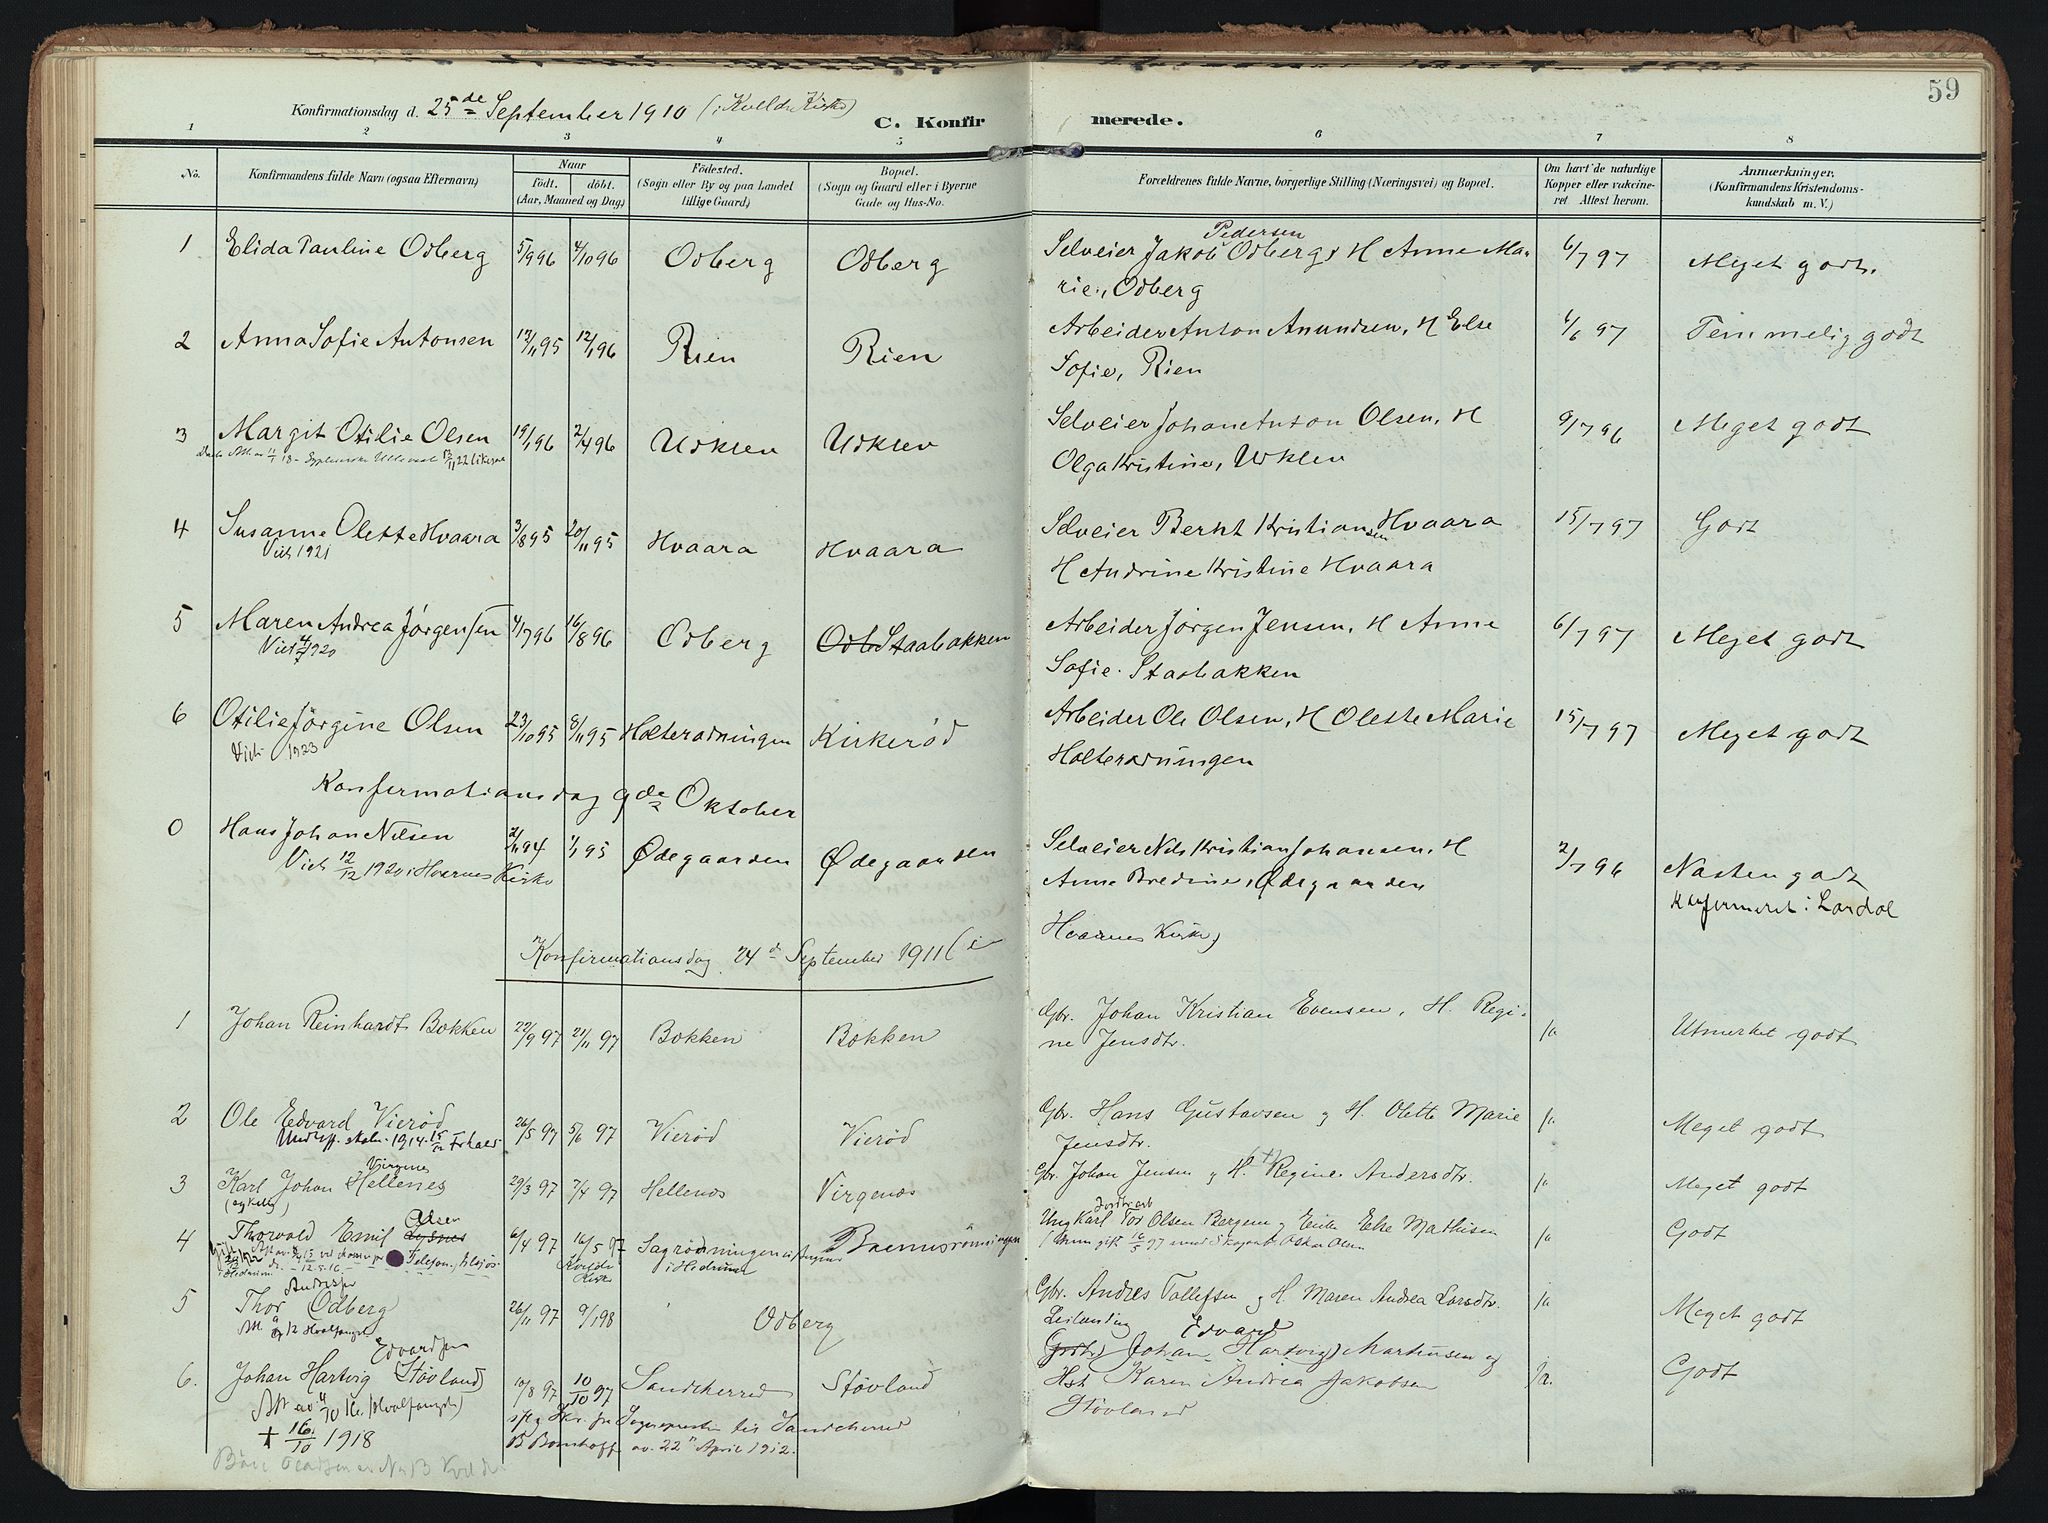 59
Konfirmationsdag d. 25de September 1910 (i Kvelde Kirke)
C. Konfirmerede.
1 2 3 4 5 6 7 8
No. Konfirmandens fulde Navn (ogsaa Efternavn) Naar födt. döbt. (Aar, Maaned og Dag) Födested. (Sogn eller By og paa Landet tillige Gaard) Bopæl. (Sogn og Gaard eller i Byerne Gade og Hus-No. Forældrenes fulde Navne, borgerlige Stilling (Næringsvei) og Bopæl. Om havt de naturlige Kopper eller vakcineret. Attest herom. Anmærkninger, (Konfirmandens Kristendomskundskab m. V.)
1 Elida Pauline Odberg 5/9 96 4/10 96 Odberg Odberg Selveier Jakob Pedersen Odberg, H Anne Ma-
rie, Odberg 6/7 97 Meget godt.
2 Anna Sofie Antonsen 12/11 95 12/1 96 Rien Rien Arbeider Anton Amundsen, H Else
Sofie, Rien 4/6 97 Temmelig godt
3 Margit Otilie Olsen 19/1 96 2/4 96 Udklev Udklev Selveier Johan Anton Olsen, H
Olga Kristine, Udklev 9/7 96 Meget godt
4 Susanne Olette Hvaara 3/8 95 20/11 95 Hvaara Hvaara Selveier Bernt Kristiansen Hvaara
Viet 1921
H Andrine Kristine Hvaara 15/7 97 Godt
5 Maren Andrea Jørgensen 4/7 96 16/8 96 Odberg Staabakken Arbeider Jörgen Jensen, H Anne
Viet 4/7 1920
Sofie. Staabakken 6/7 97 Meget godt
6 Otilie Jörgine Olsen 23/10 95 8/11 95 Holteradningen Kirkerød Arbeider Ole Olsen, H Olette Marie
Viet 1923
Holteradningen 15/7 97 Meget godt
Konfirmationsdag 9de Oktober
0 Hans Johan Nilsen 2/11 94 1/1 95 Ødegaarden Ødegaarden Selveier Nils Kristian Johansen, H
Viet 12/12 1920 i Hvarnes Kirke
Anne Bredine, Ødegaarden 2/7 96 Næsten godt
Konfirmeret i Lardal
Konfirmationsdag 24d September 1911 (i Hvarnes Kirke)
1 Johan Reinhardt Bakken 22/9 97 21/11 97 Bakken Bakken Gbr. Johan Kristian Evensen, H. Regi-
ne Jensdtr. ja Utmerket godt
2 Ole Edvard Vierød 26/5 97 5/6 97 Vierød Vierød Gbr. Hans Gustavsen og H. Olette Marie
Jensdtr. ja Meget godt
3 Karl Johan Hellenes 29/3 97 7/4 97 Hellenes Virgenes Gbr. Johan Jensen og H. Regine Andersdtr. ja Meget godt
Virgenes
4 Thorvald Emil Olsen 6/4 97 16/5 97 Sagrødningen
Kvelde Kirke
i Hedrum
Ung Karl Tor Olsen Bergem og Enke Else Mathisen ja Godt
5 Thor Andresen Odberg 26/11 97 9/1 98 Odberg Gbr. Andres Tollefsen og H. Maren Andrea Larsdtr. ja Meget godt
6. Johan Hartvig Edvardsen Støvland 10/8 97 10/10 97 Sandeherred Støvland Leilending Johan Edvard Hartvig Marthinsen og
Hst Karen Andrea Jakobsen
Støvland ja. Godt
+ 16/10 1918
av. 22n April 1912.